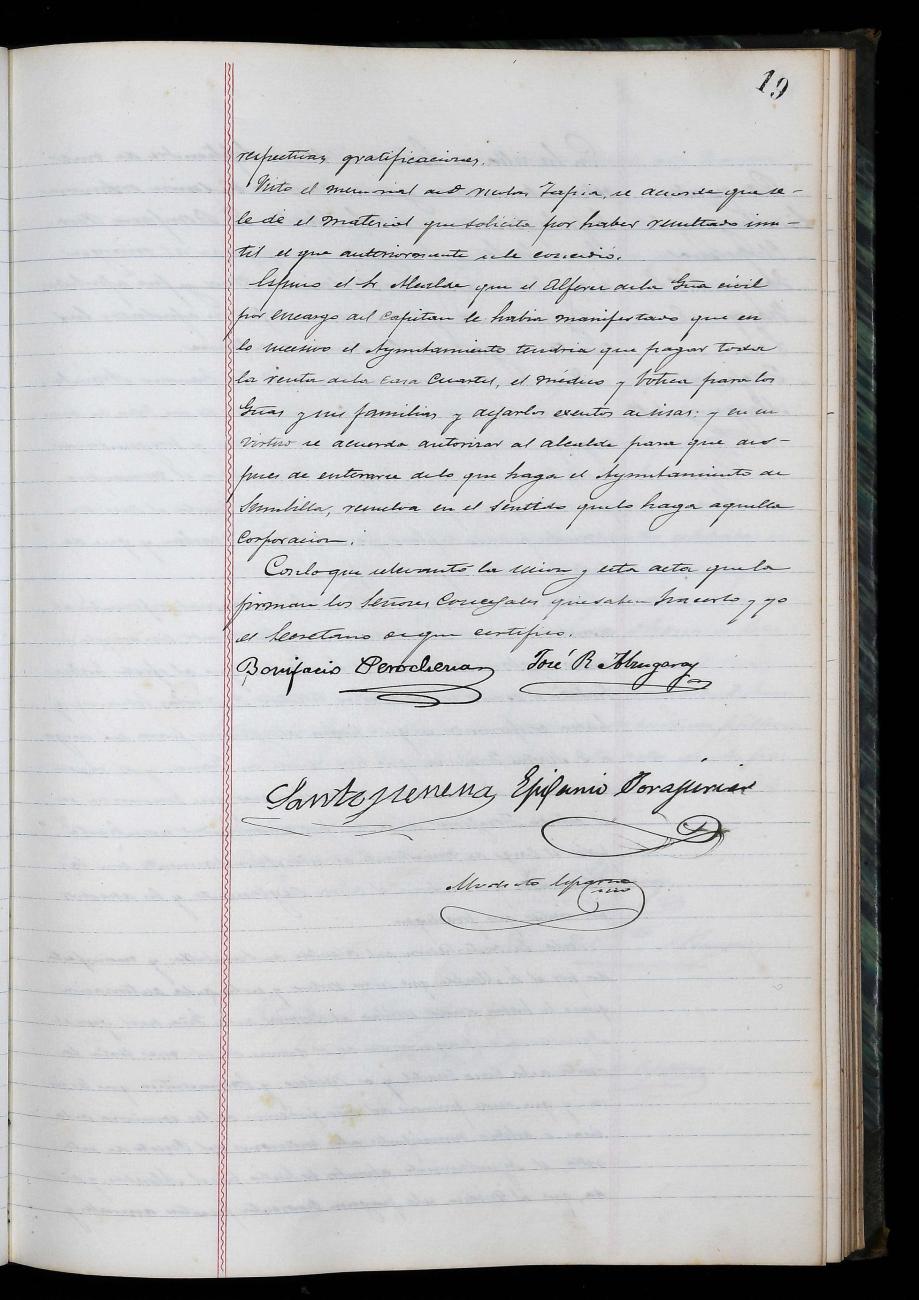 19
respectivas gratificaciones.
Visto el memorial de D. Nicolas Tapia, se acuerda que se-
le dé el material que solicita por haber resultado inu-
til el que anteriormente se le concedió.
Espuso el Sr Alcalde que el Alferez de la Gua civil
por encargo del capitan le habia manifestado que en
lo sucesivo el Ayuntamiento tendria que pagar toda
la renta de la casa Cuartel, el médico y botica para los
Guas y sus familias y dejarlos exentos de usas; y en su
virtud se acuerda autorizar al alcalde para que des-
pues de enterarse de lo que haga el Ayuntamiento de
Sumbilla, resuelva en el sentido que lo haga aquella
Corporacion.
Con lo que se levantó la sesion y esta acta que la
firman los Señores Concejales que saben hacerlo y yo
el Secretario de que certifico.
Bonifacio Perochena José R. Abrugaray
Santos Enena Epifanio
Modesto Esparza